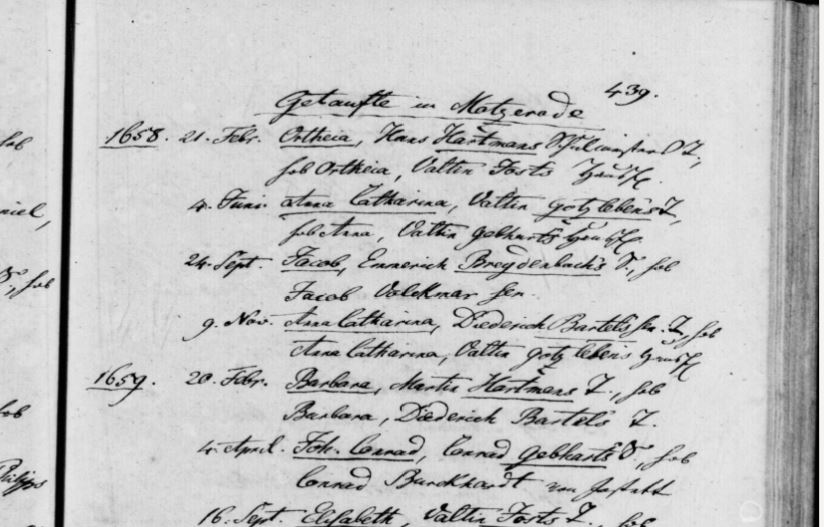 439.
Getaufte in Motzerode
1658. 21. Febr. Ortheia, Hans Hartmans Schulmeisters T.,
hob Ortheia, Valtin Forsts Hausfr.
4. Juni. Anna Catharina, Valtin Gotzlebens T.,
hob Anna, Valtin Gebharts Hausfr.
24. Sept. Jacob, Emmerich Breydenbach's S., hob
Jacob Volckmar sen.
9. Nov. Anna Catharina, Diederich Bartels sen. T., hob
Anna Catharina, Valtin Gotzlebens Hausfr.
1659. 20. Febr. Barbara, Martin Hartmans T., hob
Barbara, Diederich Bartels T.
4. April. Joh. Conrad, Conrad Gebharts S., hob
Conrad Burckhardt von
16. Sept. Elisabeth, Valtin Forsts T., hob
hob
niel,
S., hob
hob
Philipps